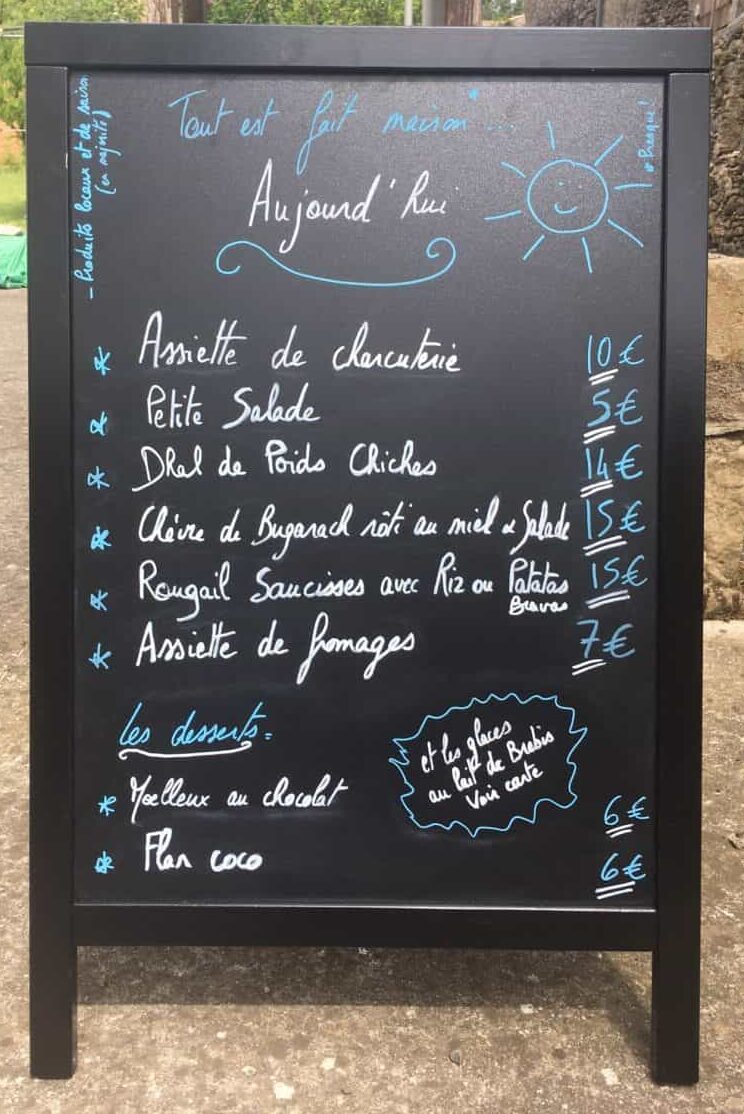 Tout est fait maison* ...
* Presque !
- Produits locaux et de saison
(en majorité)
Aujourd'hui
* Assiette de charcuterie 10 €
* Petite Salade 5 €
* Dhal de Poids Chiches 14 €
* Chèvre de Bugarach rôti au miel & Salade 15 €
* Rougail Saucisses avec Riz ou Patatas 15 €
Bravas
* Assiette de fromages 7 €
Les desserts :
et les glaces
au lait de Brebis
Voir carte
* Moelleux au chocolat 6 €
* Flan coco 6 €